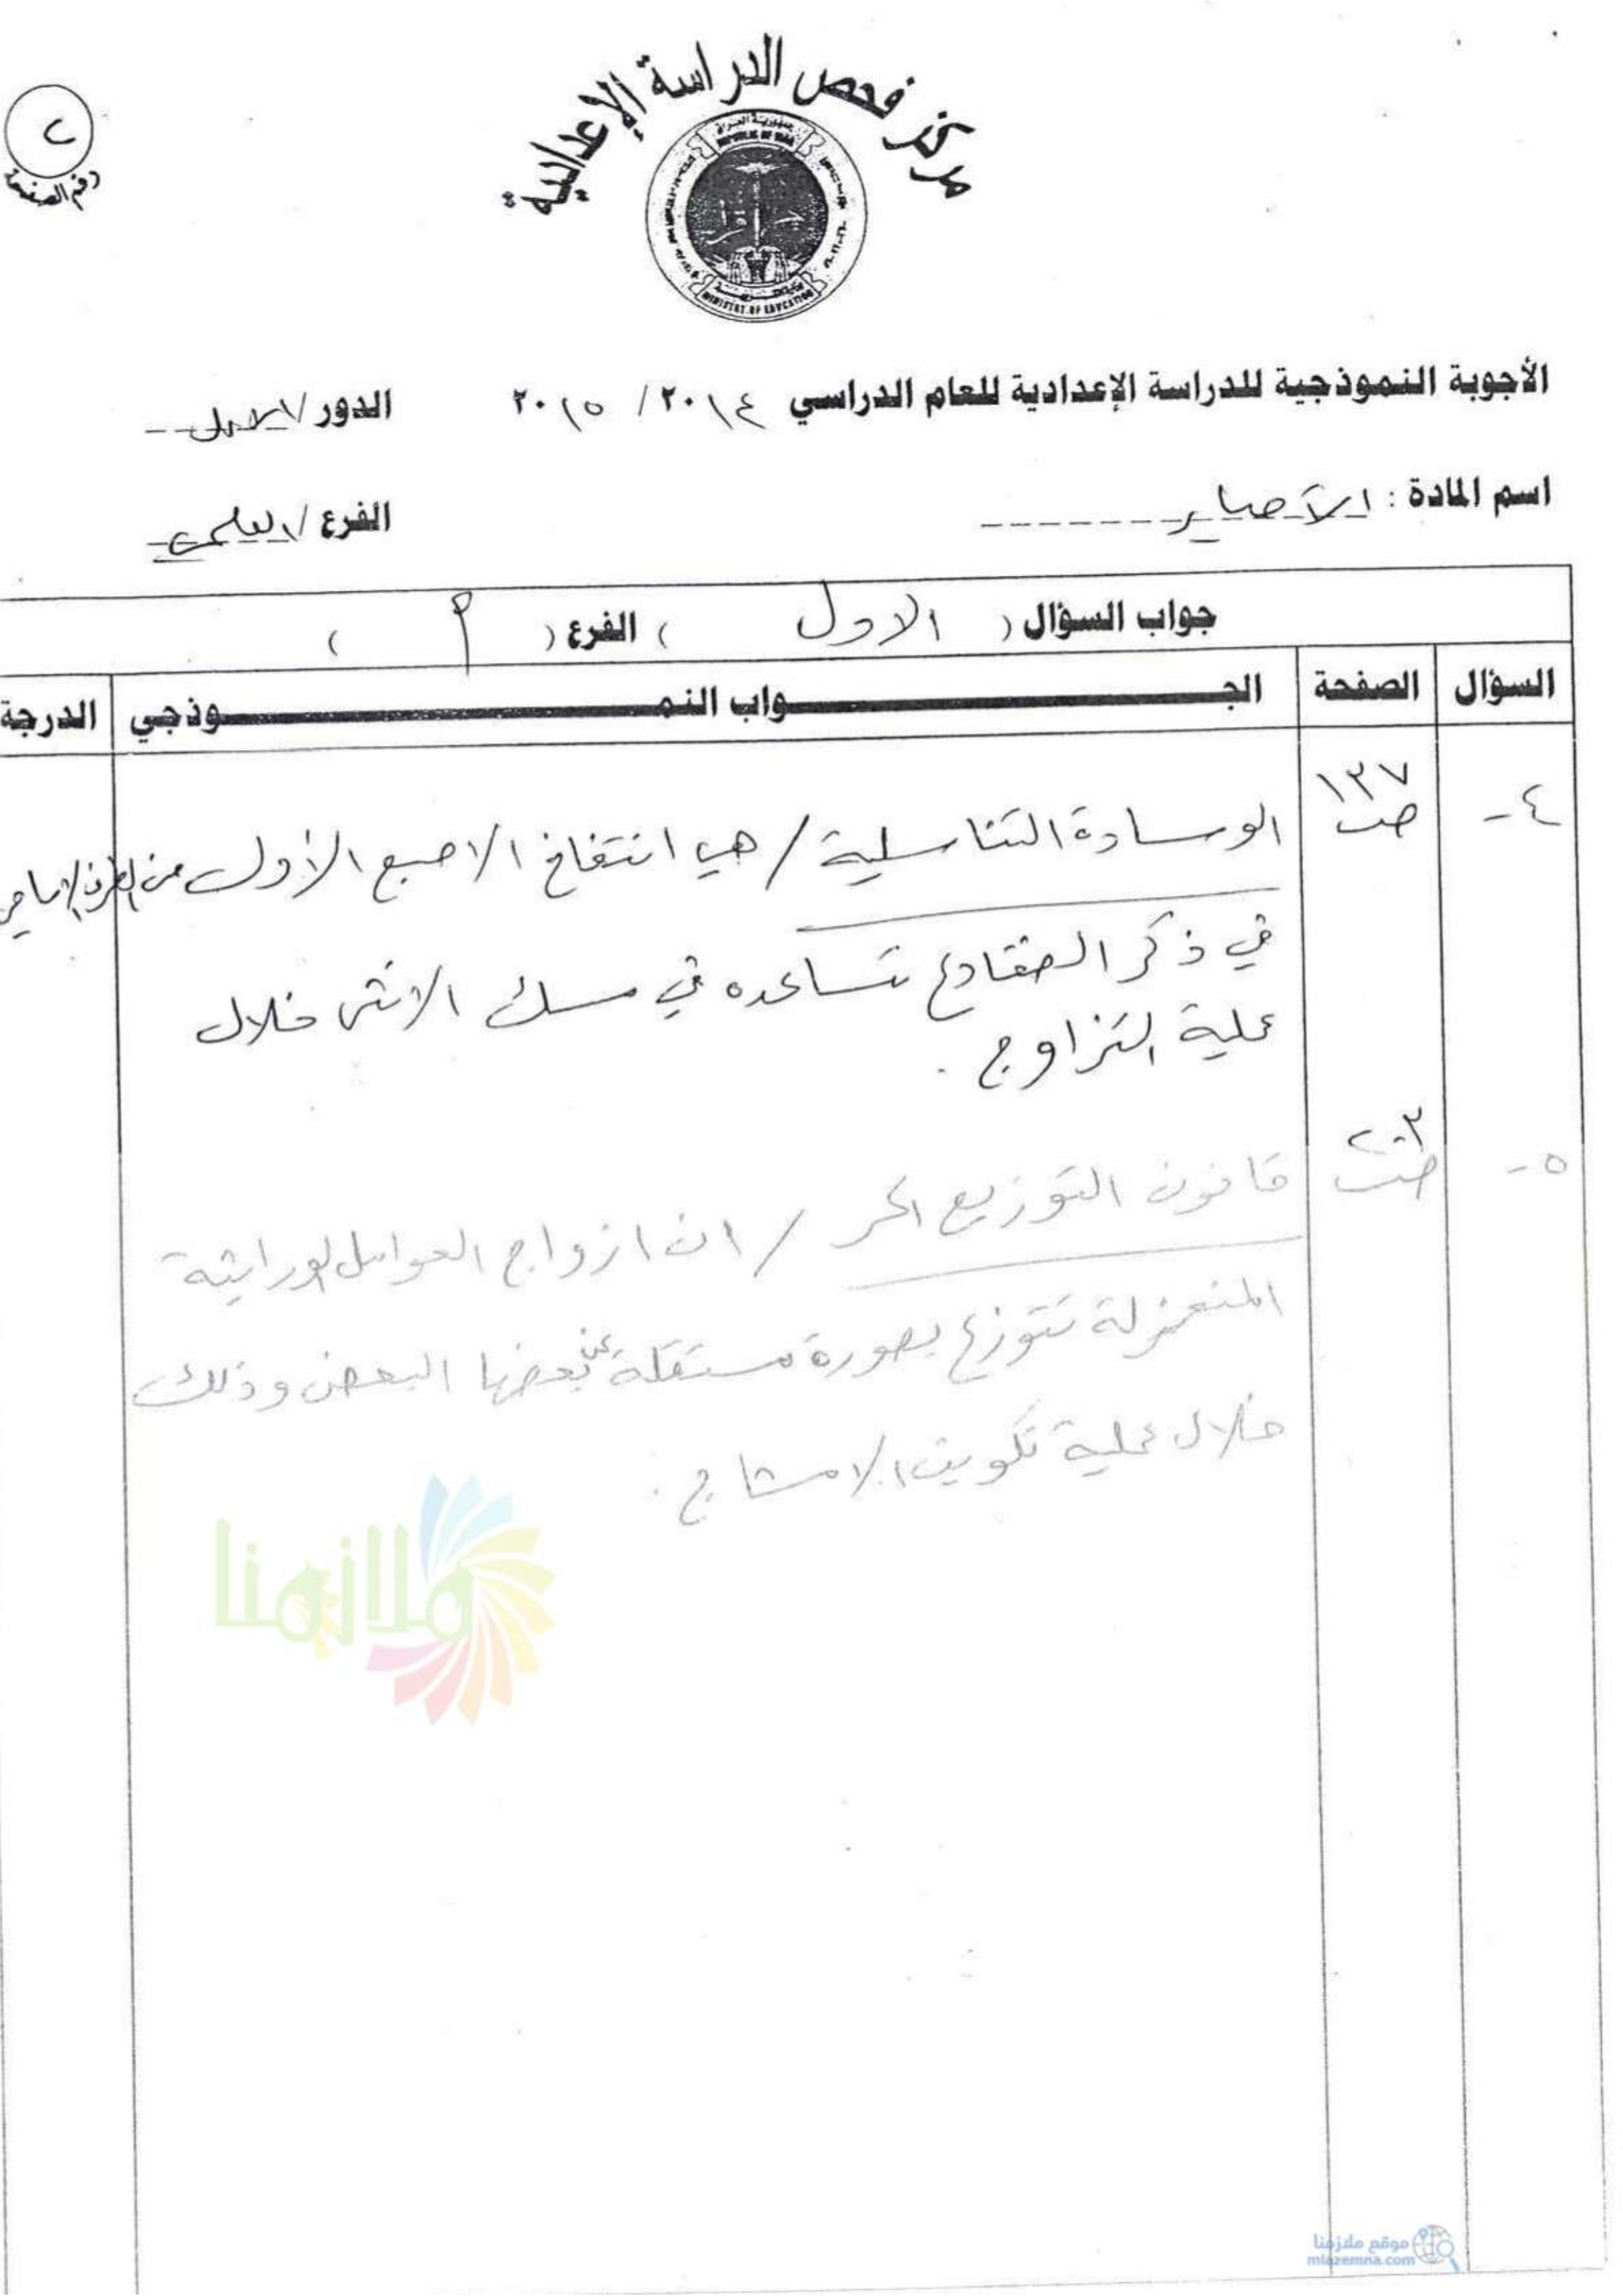 مركز فحص الدراسة الإعدادية
جمهورية العراق
REPUBLIC OF IRAQ
MINISTRY OF EDUCATION
٢
رقم الصفحة
الأجوبة النموذجية للدراسة الإعدادية للعام الدراسي ٢٠١٤ / ٢٠١٥ الدور / الاول
اسم المادة : الأحياء الفرع / العلمي
جواب السؤال ( الاول ) الفرع ( أ )
السؤال الصفحة الجواب النموذجي الدرجة
٤- ١٣٧ ص الوسادة التناسلية / هي انتفاخ الاصبع الأول من الطرف الامامي
في ذكر الضفادع تساعده في مسك الانثى خلال
عملية التزاوج .
٥- ٢٠٣ ص قانون التوزيع الحر / ان ازواج العوامل الوراثية
المنعزلة تتوزع بصورة مستقلة عن بعضها البعض وذلك
خلال عملية تكوين الامشاج .
ملازمنا
موقع ملازمنا
mlazemna.com